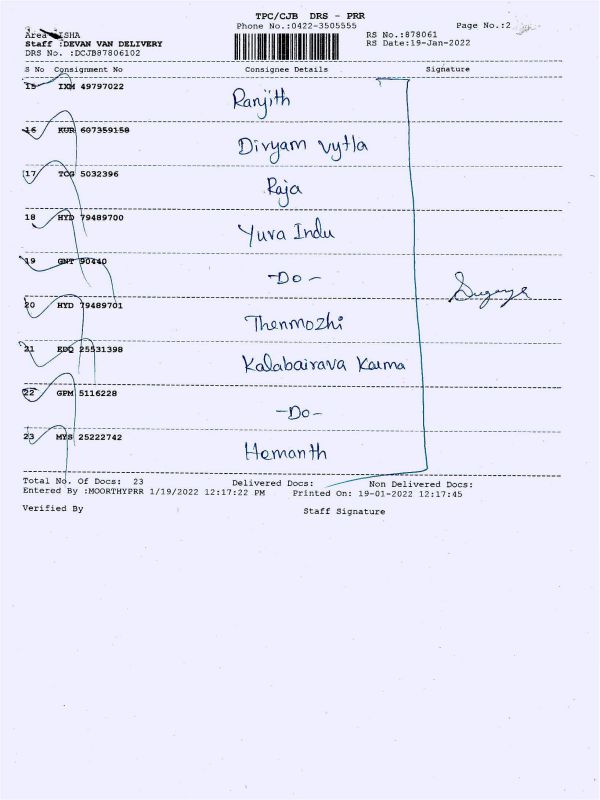 TPC/CJB DRS - PRR
Phone No.:0422-3505555 Page No.:2
Area ISHA RS No.:878061
Staff :DEVAN VAN DELIVERY RS Date:19-Jan-2022
DRS No. :DCJB87806102
S No Consignment No Consignee Details Signature
15 IXM 49797022 Ranjith
16 KUR 607359158 Divyam Vytla
17 TCG 5032396 Raja
18 HYD 79489700 Yuva Indu
19 GNT 90440 -Do-
20 HYD 79489701 Thenmozhi
21 EDQ 25531398 Kalabairava Karma
22 GPM 5116228 -Do-
23 MYS 25222742 Hemanth
Total No. Of Docs: 23 Delivered Docs: Non Delivered Docs:
Entered By :MOORTHYPRR 1/19/2022 12:17:22 PM Printed On: 19-01-2022 12:17:45
Verified By Staff Signature